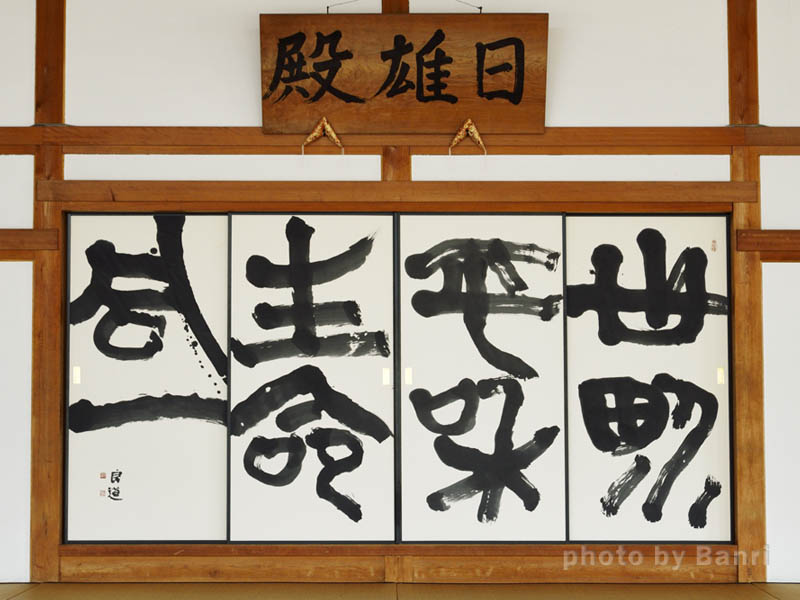 日雄殿
世界
平和
生命
一
良道
photo by Banri